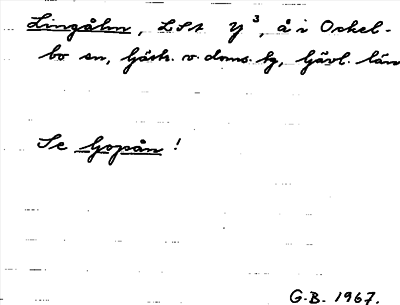 Lingåhn, LSt Y³, å i Ockel-
bo sn, Gästr. v. doms. tg, Gävl. län
Se Gopån!
G.B. 1967.